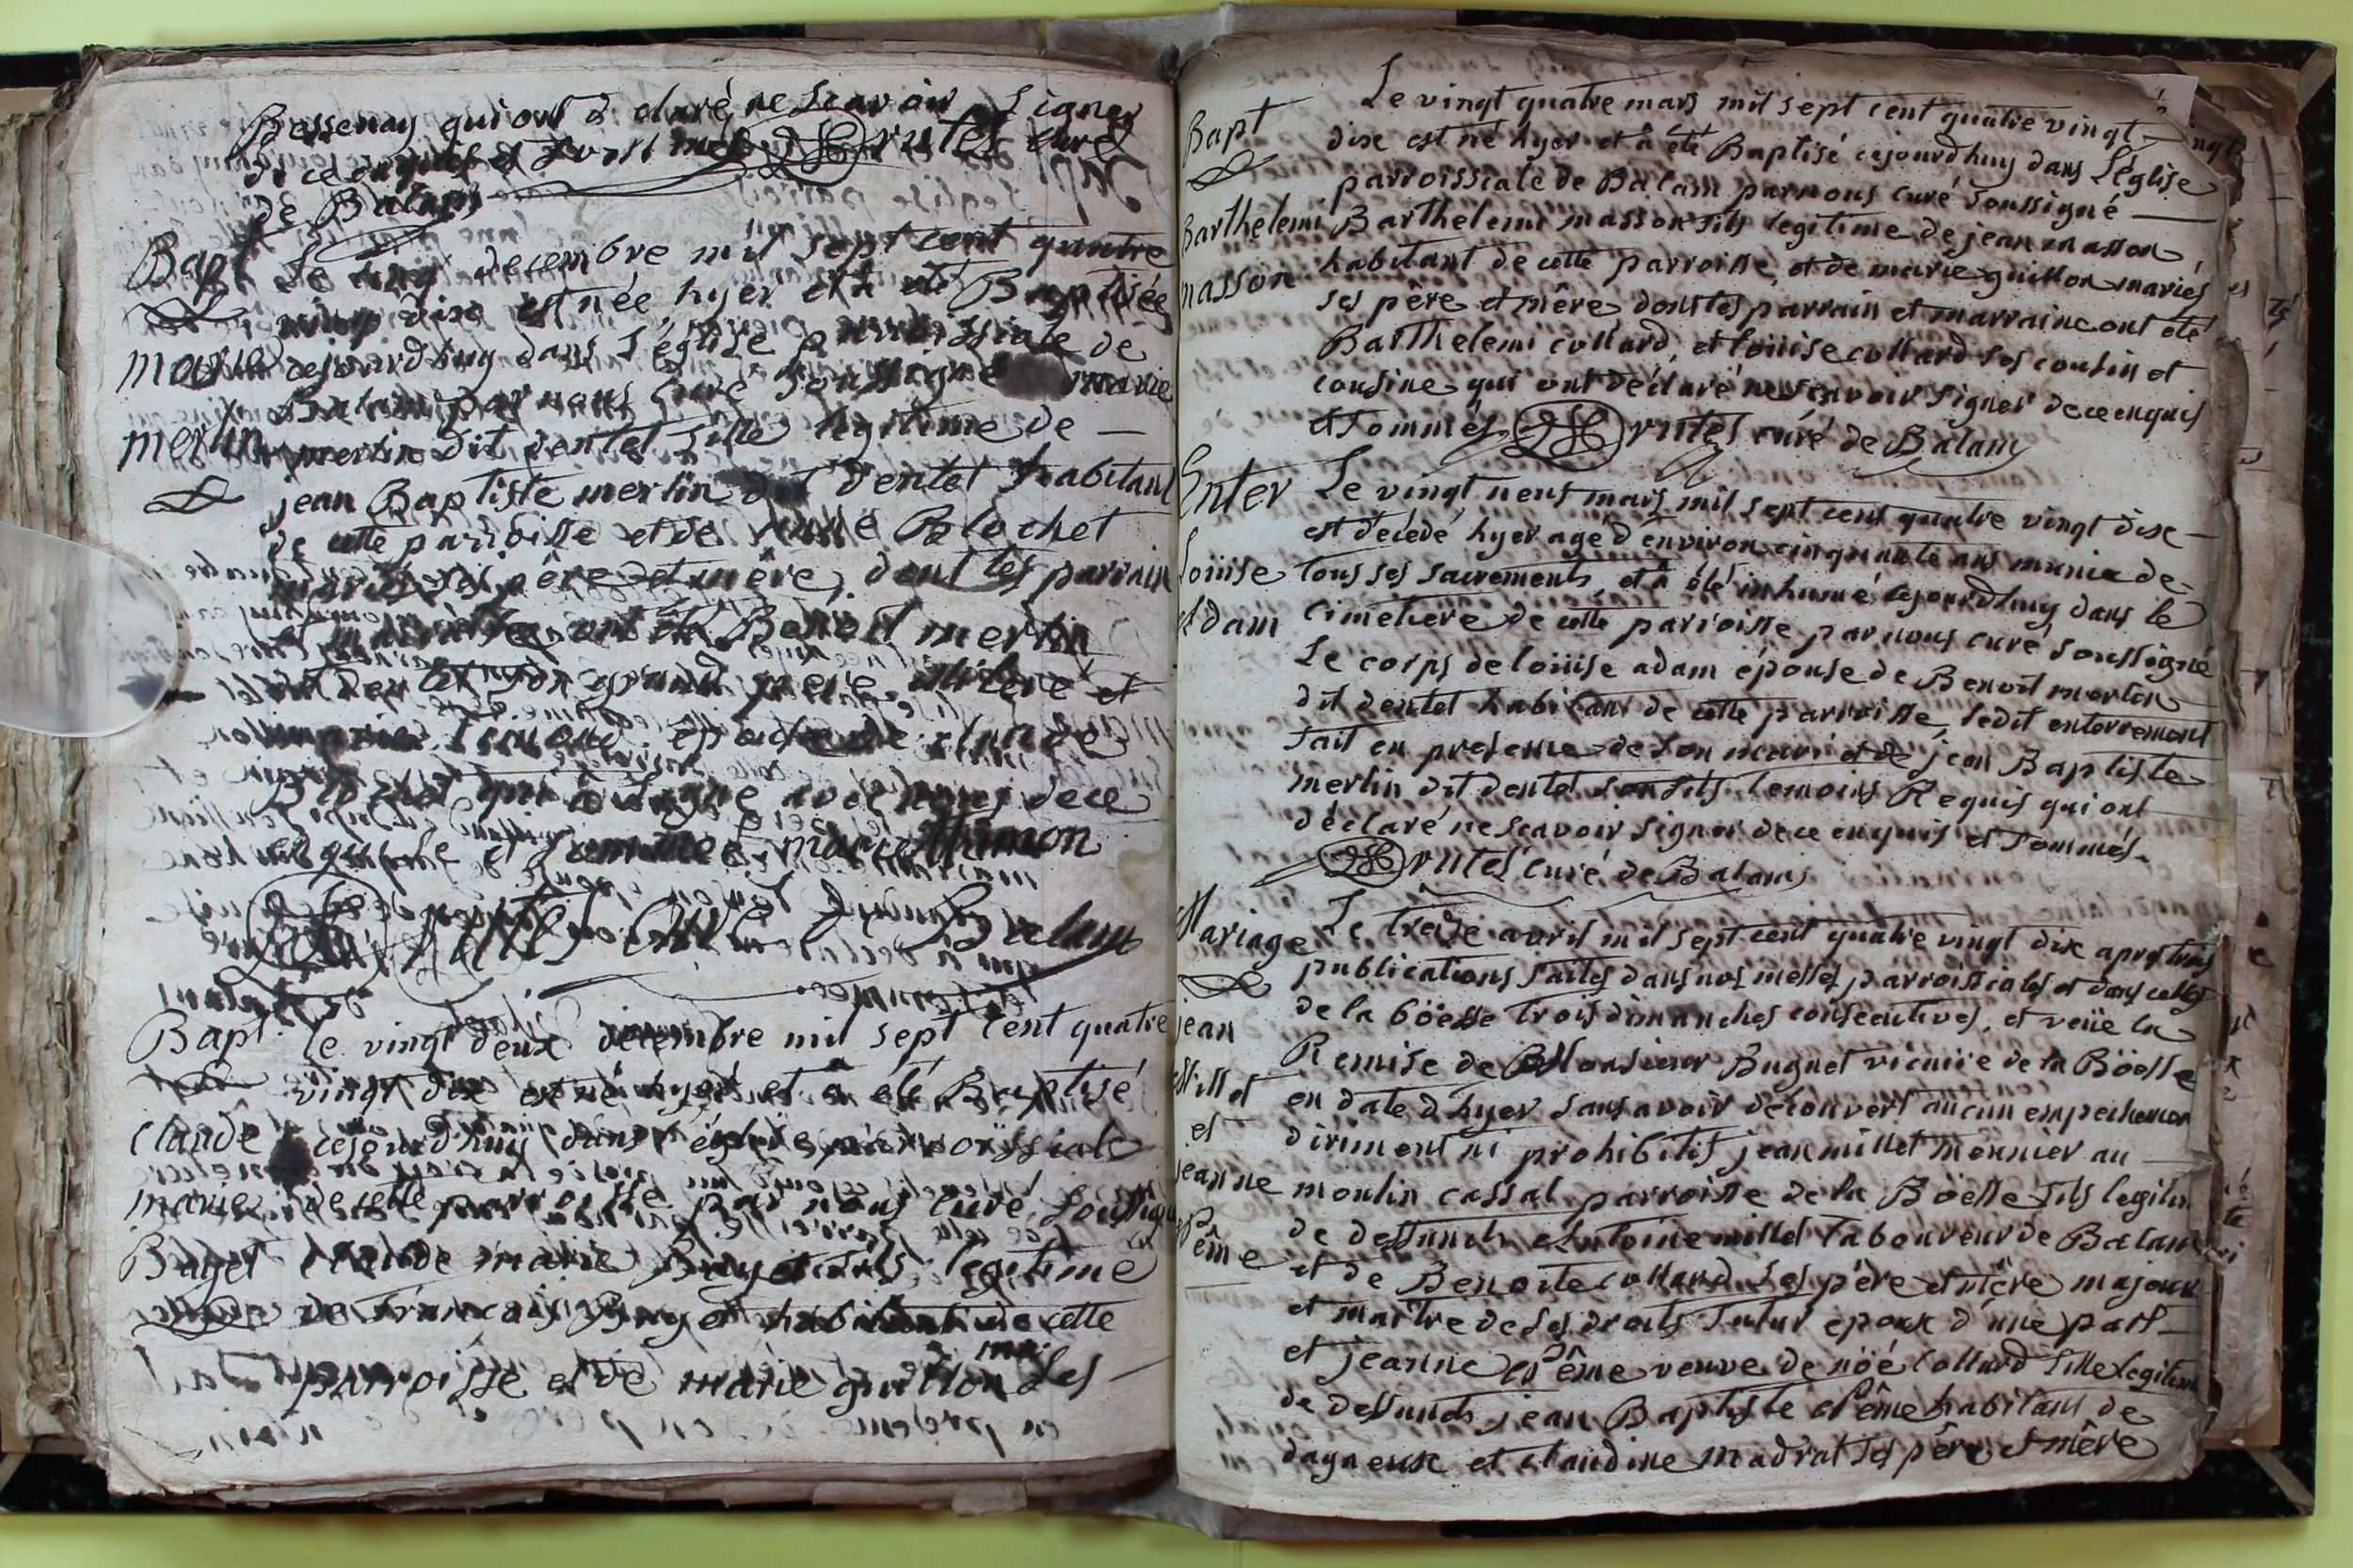 Bessenay qui ont déclaré ne scavoir signer
de ce enquis et sommés Brutel curé
de Balan
Bapt Le cinq decembre mil sept cent quatre
vingt dix est née hyer et à été Baptisée
marie cejourdhuy dans l'église parroissiale de
Balan par nous curé soussigné marie
merlin merlin dit dentel fille legitime de
jean Baptiste merlin dit dentel habitant
de cette parroisse et de Blochet
mariés ses père et mère, dont les parrain
et marraine ont été Benoit merlin
dit dentel son grand père et
marie épouse de claude
Blochet qui à signé avec nous de ce
enquise et sommée marie thimon
Brutel curé de Balan
Bapt. le vingt deux decembre mil sept cent quatre
vingt dix est né hyer et à été Baptisé
claude cejourdhuy dans l'église parroissiale
marie de cette parroisse par nous curé soussigné
Buget claude marie Buget fils legitime
de francois Buget habitant de cette
parroisse et de marie guillon ses
Le vingt quatre mars mil sept cent quatre vingt
Bapt dix est né hyer et à été Baptisé cejourdhuy dans l'église
parroissiale de Balan par nous curé soussigné
Barthelemi Barthelemi masson fils legitime de jean masson
masson habitant de cette parroisse, et de marie guillon mariés
ses père et mère dont les parrain et marraine ont été
Barthelemi collard, et loüise collard ses cousin et
cousine qui ont déclaré ne scavoir signer de ce enquis
et sommés Brutel curé de Balan
Enter Le vingt neuf mars mil sept cent quatre vingt dix
est décédé hyer agé d'environ cinquante ans munie de
Loüise tous ses sacrements, et à été inhumé cejourdhuy dans le
Adam cimetiere de cette parroisse par nous curé soussigné
Le corps de loüise adam épouse de Benoit merlin
dit dentel habitant de cette parroisse, ledit enterrement
fait en presence de son mari et de jean Baptiste
merlin dit dentel son fils temoins Requis qui ont
déclaré ne scavoir signer de ce enquis et sommés.
Brutel curé de Balan
Mariage Le treize avril mil sept cent quatre vingt dix apres trois
publications faites dans nos messes parroissiales et dans celles
jean de la böesse trois dimanches consecutives, et veüe la
Remise de Monsieur Bugnet vicaire de la Böesse
Millet en date d'hyer sans avoir decouvert aucun empechement
et dirimant ni prohibitif jean millet meunier au
jeanne moulin cassal parroisse de la Böesse fils legitim
Pême de deffunts Antoine millet laboureur de Balan
et de Benoite collard ses père et mère majeur
et maître de ses droits futur époux d'une part
et jeanne Pême veuve de nöé collard fille legitime
de deffunts jean Baptiste Pême habitant de
dagneux et claudine madrat ses père et mère